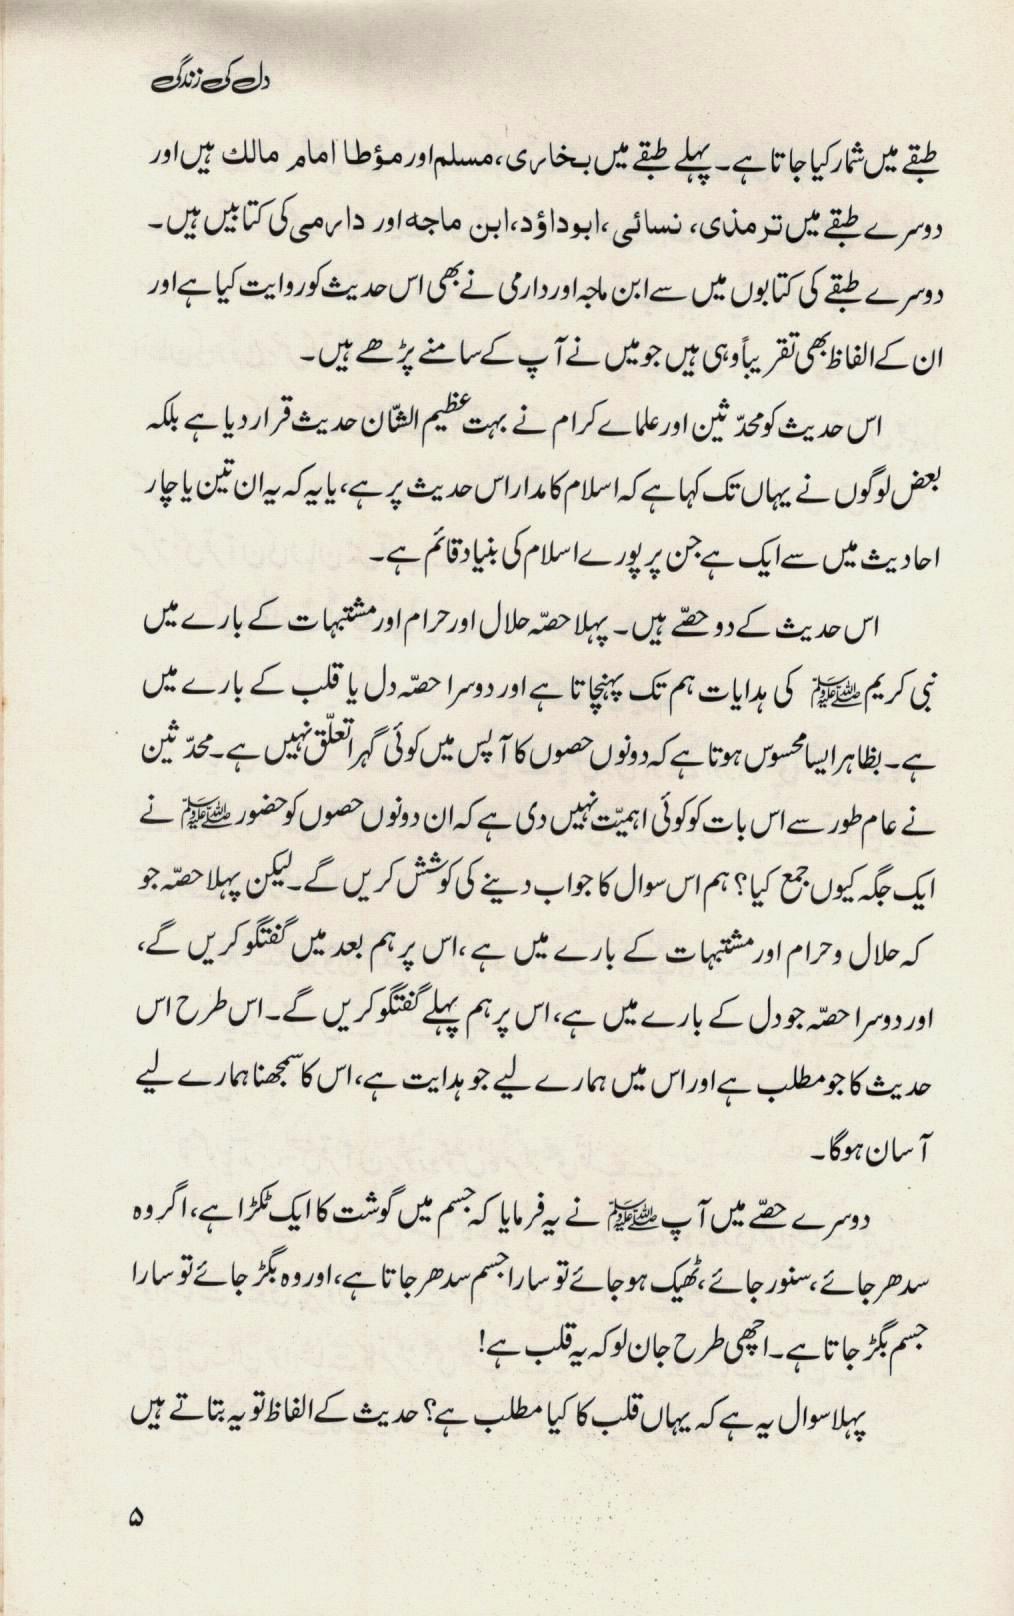 دل کی زندگی
طبقے میں شمار کیا جاتا ہے۔ پہلے طبقے میں بخاری، مسلم اور مؤطا امام مالک ہیں اور
دوسرے طبقے میں ترمذی، نسائی، ابوداؤد، ابن ماجہ اور دارمی کی کتابیں ہیں۔
دوسرے طبقے کی کتابوں میں سے ابن ماجہ اور دارمی نے بھی اس حدیث کو روایت کیا ہے اور
ان کے الفاظ بھی تقریباً وہی ہیں جو میں نے آپ کے سامنے پڑھے ہیں۔
اس حدیث کو محدّثین اور علماے کرام نے بہت عظیم الشّان حدیث قرار دیا ہے بلکہ
بعض لوگوں نے یہاں تک کہا ہے کہ اسلام کا مدار اس حدیث پر ہے، یا یہ کہ یہ ان تین یا چار
احادیث میں سے ایک ہے جن پر پورے اسلام کی بنیاد قائم ہے۔
اس حدیث کے دو حصّے ہیں۔ پہلا حصّہ حلال اور حرام اور مشتبہات کے بارے میں
نبی کریم ﷺ کی ہدایات ہم تک پہنچاتا ہے اور دوسرا حصّہ دل یا قلب کے بارے میں
ہے۔ بظاہر ایسا محسوس ہوتا ہے کہ دونوں حصوں کا آپس میں کوئی گہرا تعلّق نہیں ہے۔ محدّثین
نے عام طور سے اس بات کو کوئی اہمیّت نہیں دی ہے کہ ان دونوں حصوں کو حضور ﷺ نے
ایک جگہ کیوں جمع کیا؟ ہم اس سوال کا جواب دینے کی کوشش کریں گے۔ لیکن پہلا حصّہ جو
کہ حلال و حرام اور مشتبہات کے بارے میں ہے، اس پر ہم بعد میں گفتگو کریں گے،
اور دوسرا حصّہ جو دل کے بارے میں ہے، اس پر ہم پہلے گفتگو کریں گے۔ اس طرح اس
حدیث کا جو مطلب ہے اور اس میں ہمارے لیے جو ہدایت ہے، اس کا سمجھنا ہمارے لیے
آسان ہوگا۔
دوسرے حصّے میں آپ ﷺ نے یہ فرمایا کہ جسم میں گوشت کا ایک ٹکڑا ہے، اگر وہ
سدھر جائے، سنور جائے، ٹھیک ہو جائے تو سارا جسم سدھر جاتا ہے، اور وہ بگڑ جائے تو سارا
جسم بگڑ جاتا ہے۔ اچھی طرح جان لو کہ یہ قلب ہے!
پہلا سوال یہ ہے کہ یہاں قلب کا کیا مطلب ہے؟ حدیث کے الفاظ تو یہ بتاتے ہیں
۵